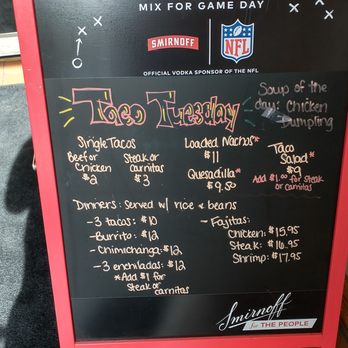 MIX FOR GAME DAY
SMIRNOFF
NFL
OFFICIAL VODKA SPONSOR OF THE NFL
Taco Tuesday
Soup of the
day: Chicken
Dumpling
Single Tacos
Beef or
Chicken
$2
Steak or
carnitas
$3
Loaded Nachos*
$11
Quesadilla*
$9.50
Taco
Salad*
$9
Add $1.00 for steak
or carnitas
Dinners: Served w/ rice & beans
- 3 tacos: $10
- Burrito: $12
- Chimichanga: $12
- 3 enchiladas: $12
*Add $1 for
steak or
carnitas
- Fajitas:
Chicken: $15.95
Steak: $16.95
Shrimp: $17.95
Smirnoff
for THE PEOPLE